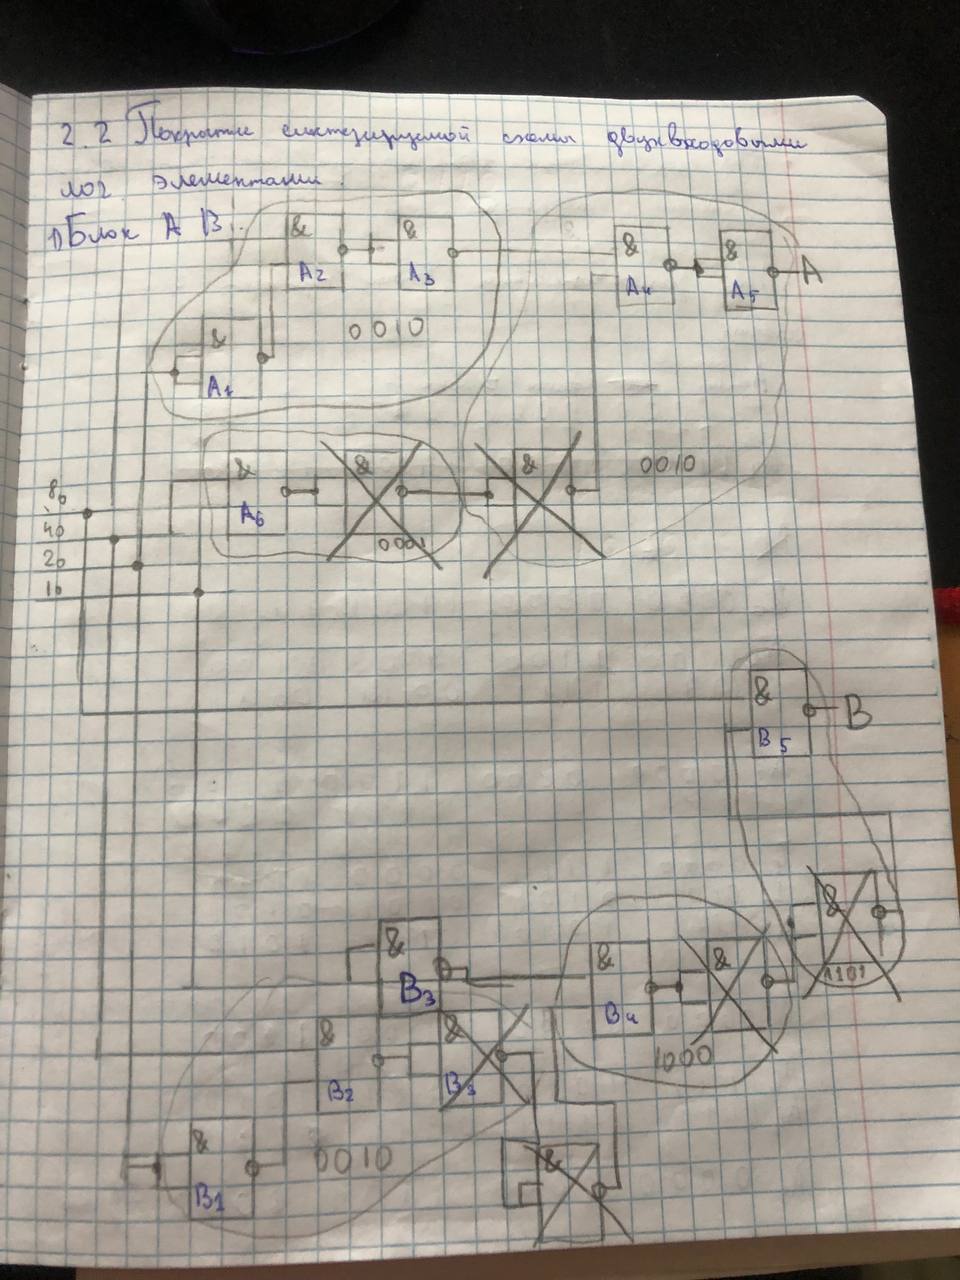 2.2 Покрытие синтезируемой схемы двухвходовыми
лог. элементами.
1) Блок А В.
& & & &
A2 A3 A4 A5 A
& 0010
A1
& & & 0010
A6 0001
80
40
20
10
& B
B5
&
1101
& & &
B3 B4
1000
& &
B2 B3
& 0010 &
B1